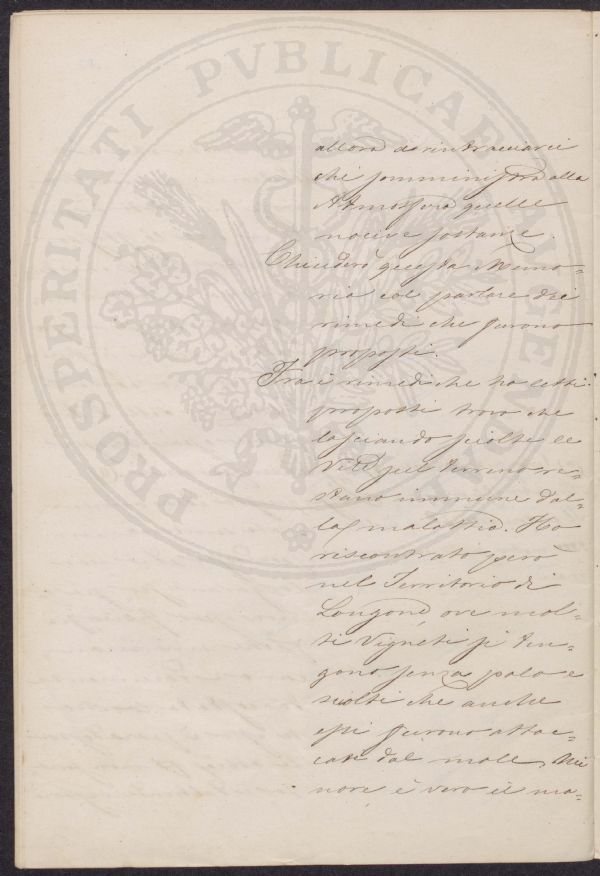 PROSPERITATI PVBLICAE AVGENDAE
allora a rintracciarci
chi somministra alla
Atmosfera quelle
nocive sostanze.
Chiuderò questa Memo=
ria col parlare dei
rimedi che furono
proposti.
Fra i rimedi che ho letti
proposti trovo che
lasciando sciolte le
Viti sul terreno re=
stano immune dal=
la malattia. Ho
riscontrato però
nel Territorio di
Longone, ove mol=
ti Vigneti si ten=
gono senza palo e
sciolti che anche
essi furono attac=
cati dal male, Mi
nore è vero il ma=